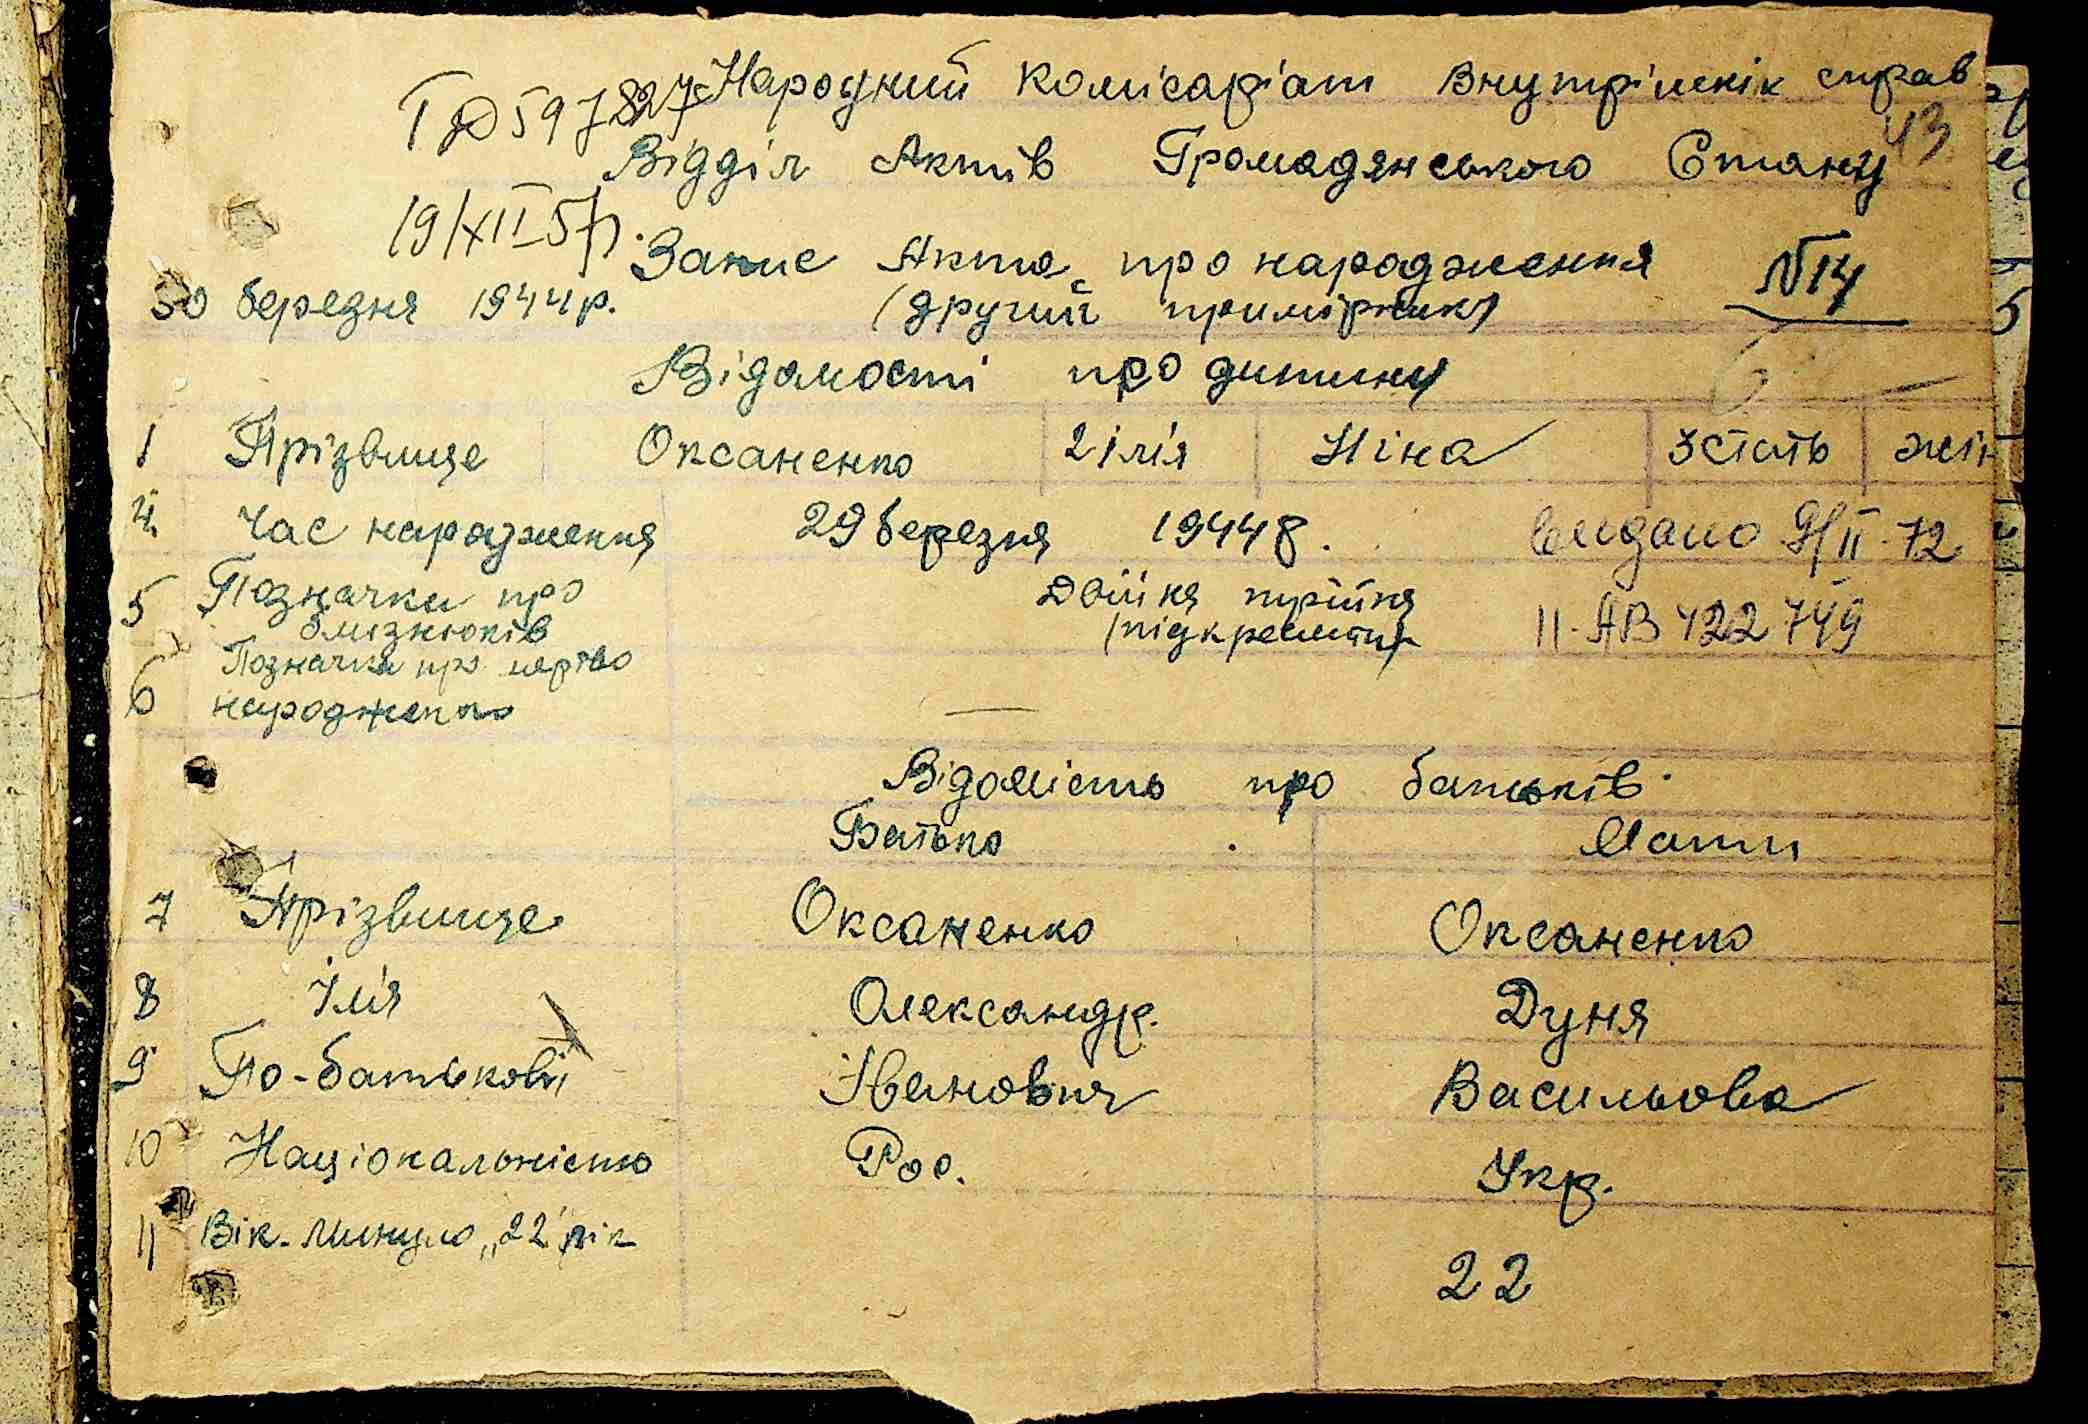 ІФ 597827 Народний Комісаріат Внутрішніх справ
43
Відділ Актів Громадянського Стану
19/XII-57р.
Запис Акта про народження №14
30 березня 1944р. (другий примірник)
Відомості про дитину
1 Прізвище Оксаненко 2 ім'я Ніна 3 стать жін
4 Час народження 29 березня 1944р. видано 9/II-72
5 Позначки про близнюків Двійня трійня (підкреслити) II-АВ 422749
6 Позначки про мертво народжено —
Відомість про батьків
Батько Мати
7 Прізвище Оксаненко Оксаненко
8 Ім'я Олександр. Дуня
9 По-батькові Іванович Васильова
10 Національність Рос. Укр.
11 Вік. Минуло „22 рік 22